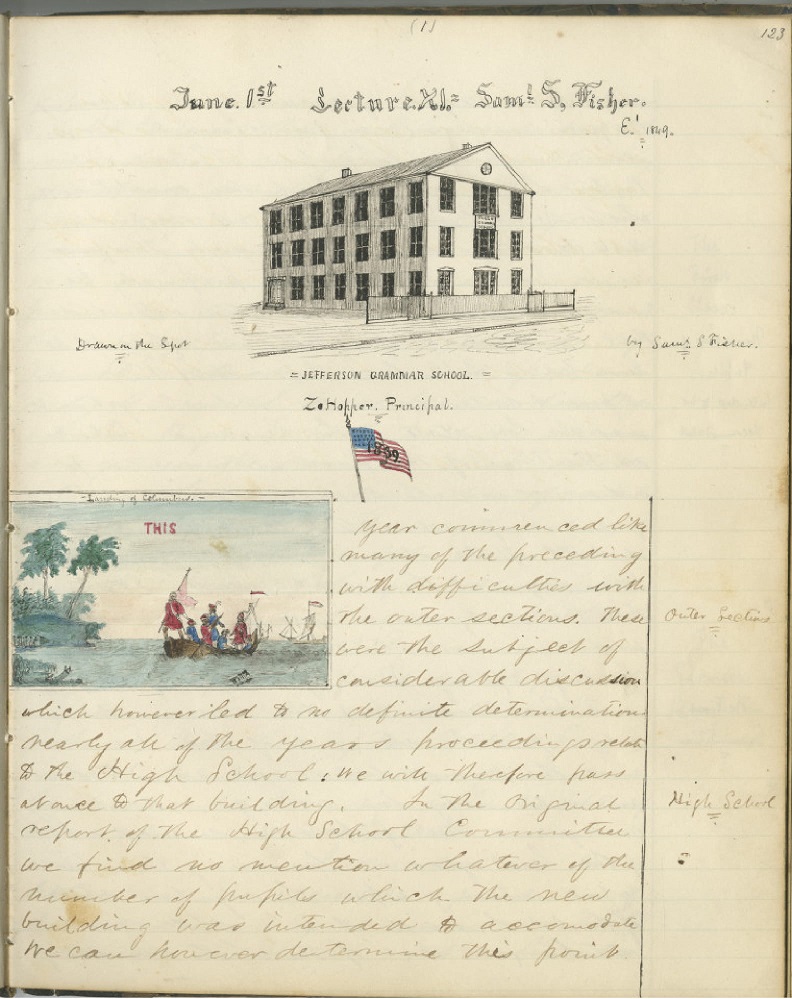 (1)
123
June. 1st Lecture. XI. Saml S. Fisher.
E. 1849.
Drawn on the Spot
by Saml S Fisher.
= JEFFERSON GRAMMAR SCHOOL. =
Z. Hopper. Principal.
- Landing of Columbus. -
THIS
year commenced like
many of the preceding
with difficulties with
the outer sections. These
Outer Sections
were the subject of
considerable discussion
which however led to no definite determination
nearly all of the years proceedings relate
to the High School; we will therefore pass
at once to that building. In the Original
High School
report of the High School Committee
we find no mention whatever of the
number of pupils which the new
building was intended to accomodate
We can however determine this point